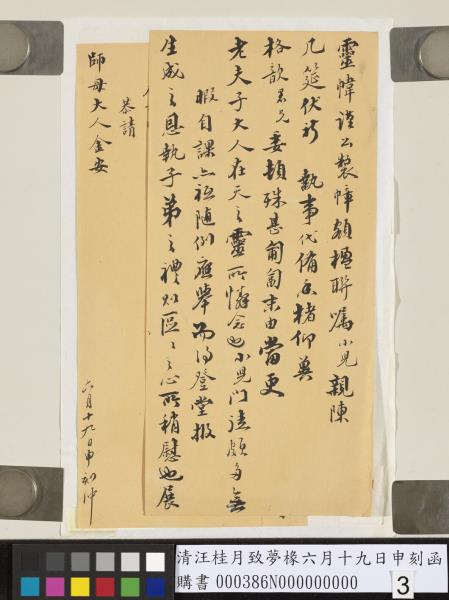 靈幃謹公製幛額楹聯囑小兒親陳
几筵伏祈 執事代備香楮仰奠
格歆君光委頓殊甚匍匐末由當更
老夫子大人在天之靈所憐念也小兒門徒頗多無
暇自課亦祗隨例應舉而得登堂報
生成之恩執子弟之禮則區區之心所稍慰也展
恭請
師母大人金安
六月十九日申刻沖
清汪桂月致夢椽六月十九日申刻函
購書 000386N000000000
3